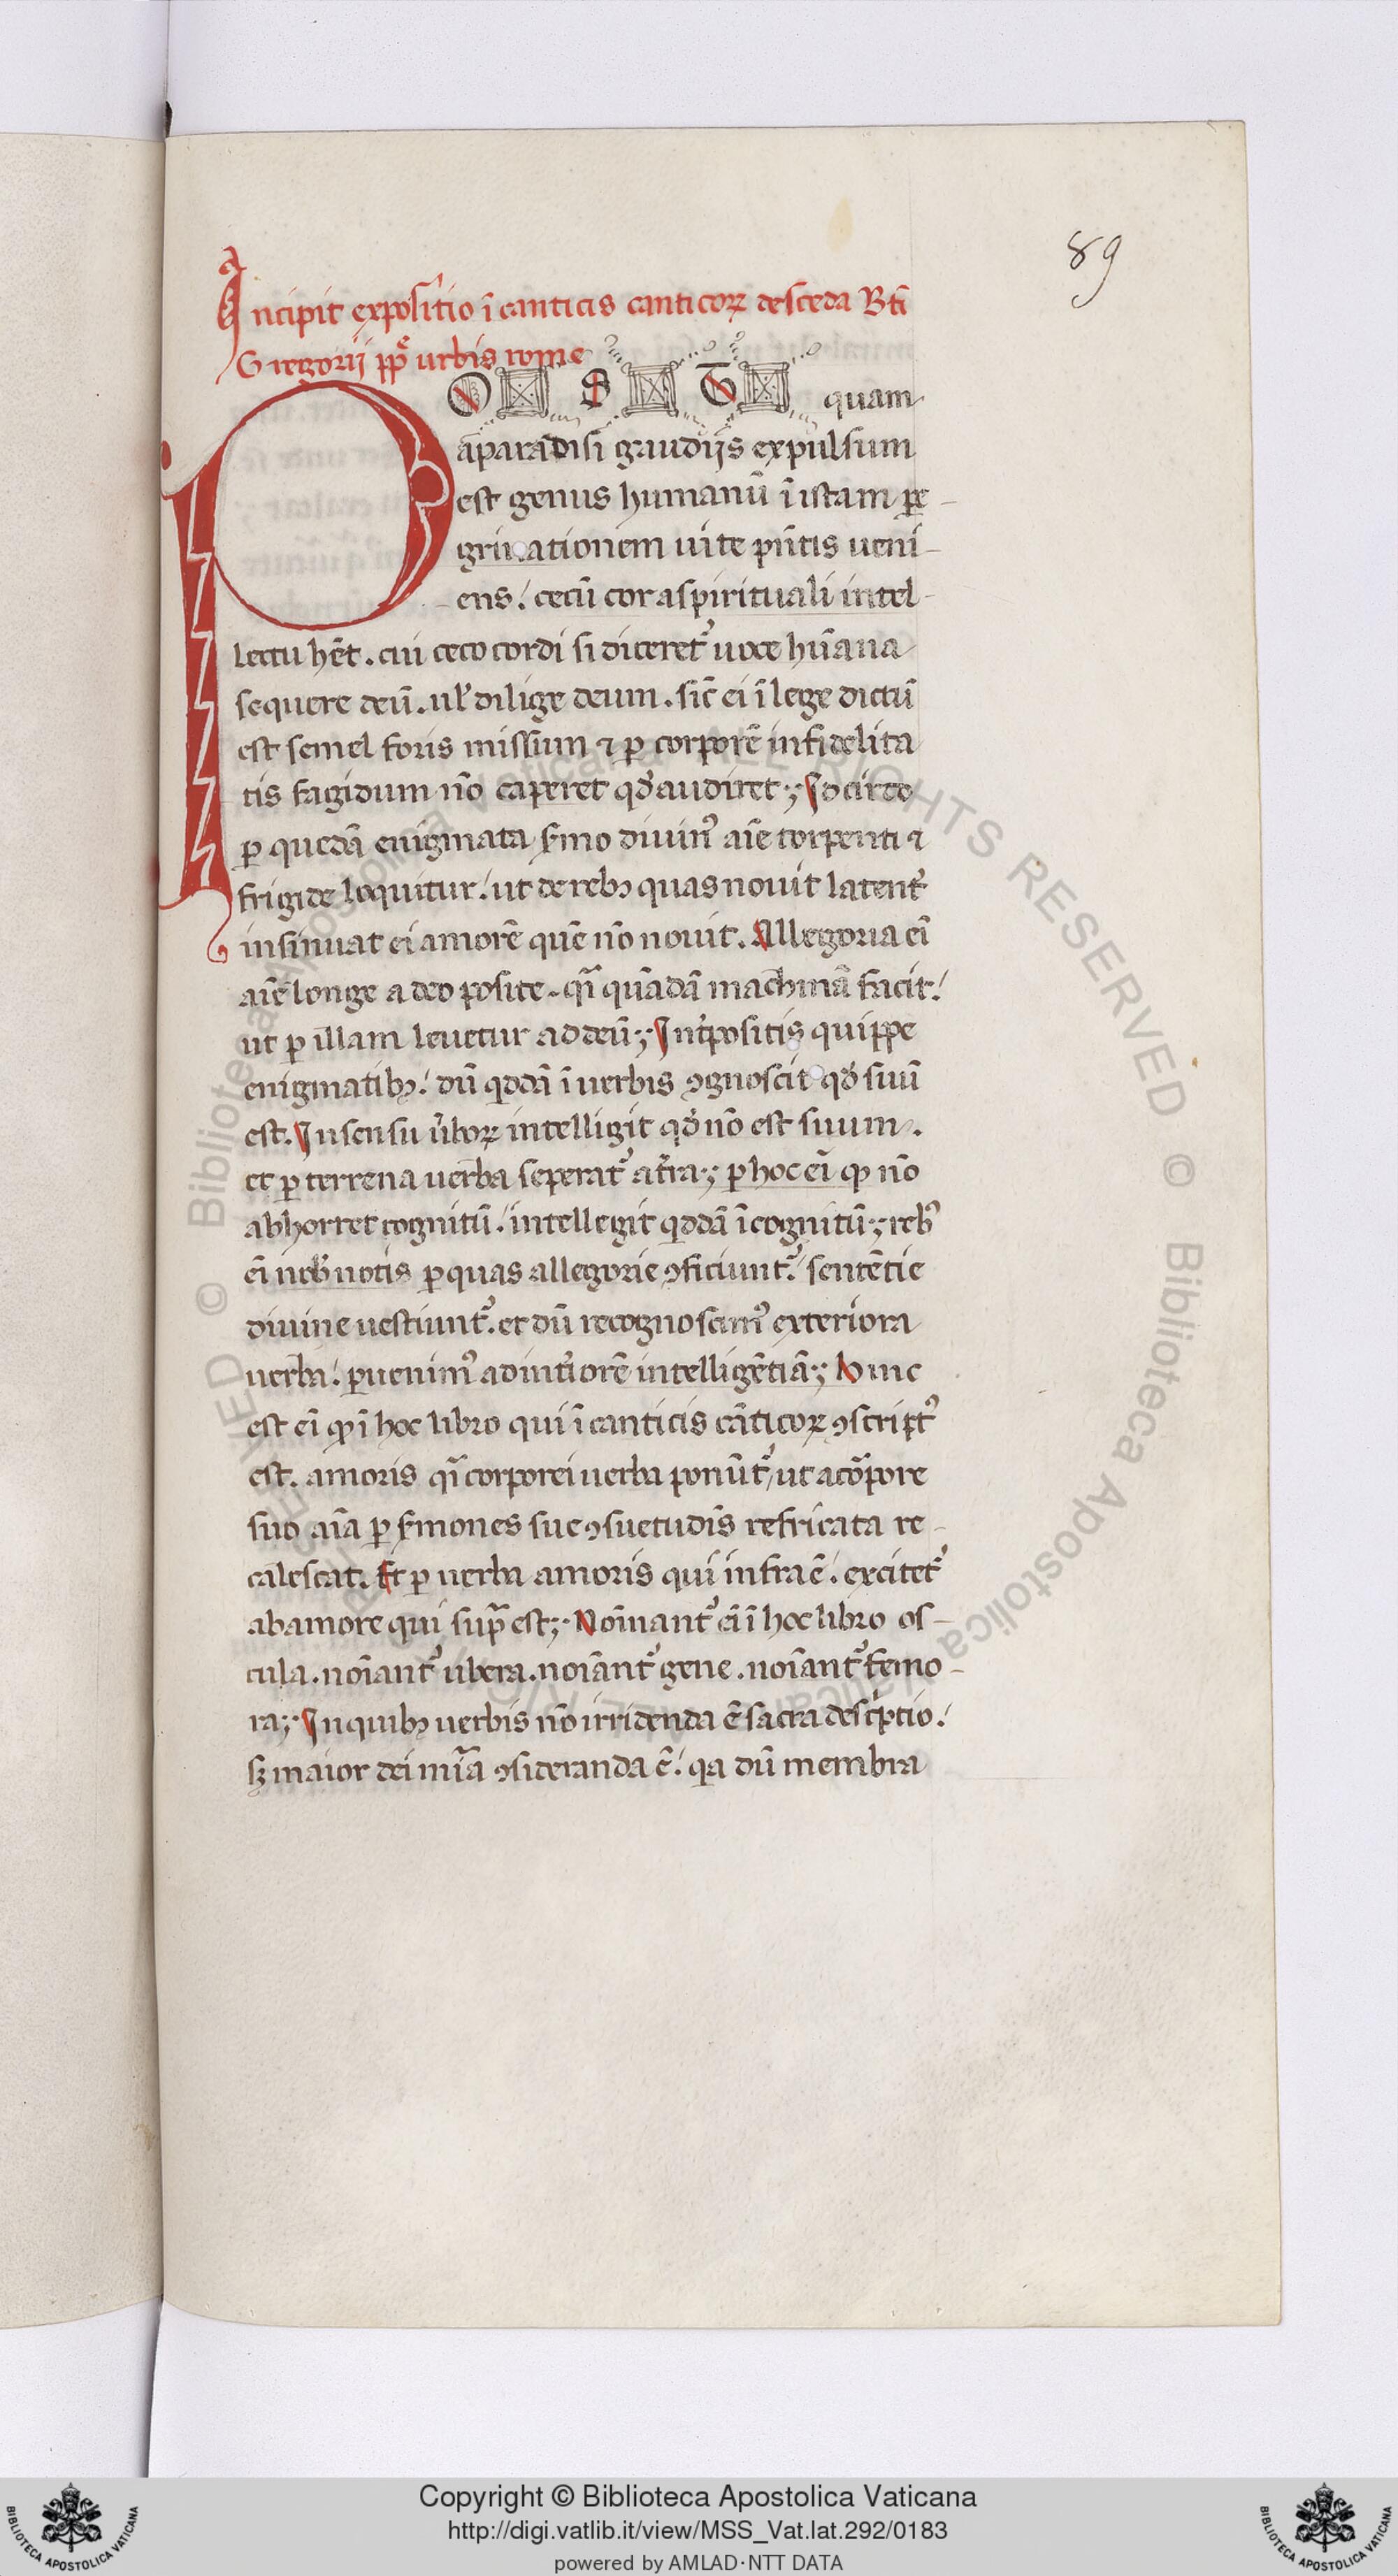 89
Incipit expositio ī canticis canticoꝝ desceda Bt̄i
Gregorii pp̄e urbis rome
POSTquam
a paradisi gaudijs expulsum
est genus humanū ī istam ꝑe-
grinationem uite pn̄tis ueni-
ens / cecū cor a spirituali intel-
lectu hēt. cui ceco cordi si diceret᷒ uoce hūana
sequere deū. ul̓ dilige deum. sic̄ ei ī lege dictū
est semel foris missum ⁊ ꝑ corporē infidelita
tis fagidum nō caperet qd̓ audiret ; Idcirco
ꝑ quedā enigmata s̓mo diuin᷒ aīe torpenti ⁊
frigide loquitur / ut de reb᷒ quas nouit latent᷒
insinuat ei amorē quē nō nouit. Allegoria eī
aīe longe a deo posite. qͣi quādā machinā facit /
ut ꝑ illam leuetur ad deū ; Int̓positis quippe
enigmatibꝫ / dū qddā ī uerbis ꝯgnoscit qd̓ suū
est. In sensu u̓boꝝ intelligit qd̓ nō est suum.
et ꝑ terrena uerba seperat᷒ a t̓ra ; ꝑ hoc eī ꝙ nō
abhorret cognitū / intellegit qddā īcognitū ; reb᷒
eī nob̓ notis ꝑ quas allegorie ꝯficiunt᷒ / sentētie
diuine uestiunt᷒. et dū recognoscim᷒ exteriora
uerba / ꝑuenim᷒ ad int̓iorē intelligētiā ; Hinc
est eī ꝙ ī hoc libro qui ī canticis cāticoꝝ ꝯscript᷒
est. amoris qͣi corporei uerba ponūt᷒ / ut a cōpore
suo aīa ꝑ s̓mones sue ꝯsuetudīs refricata re-
calescat. Et ꝑ uerba amoris qui infra ē / excitet᷒
ab amore qui supͣ est ; Noīnant᷒ eī ī hoc libro os-
cula. noīant᷒ ubera. noīant᷒ gene. noīant᷒ femo-
ra ; In quibꝫ uerbis nō irridenda ē sacra descͥptio /
sꝫ maior dei mīa ꝯsideranda ē / qa dū membra
Copyright © Biblioteca Apostolica Vaticana
http://digi.vatlib.it/view/MSS_Vat.lat.292/0183
powered by AMLAD·NTT DATA
BIBLIOTECA APOSTOLICA VATICANA
BIBLIOTECA APOSTOLICA VATICANA